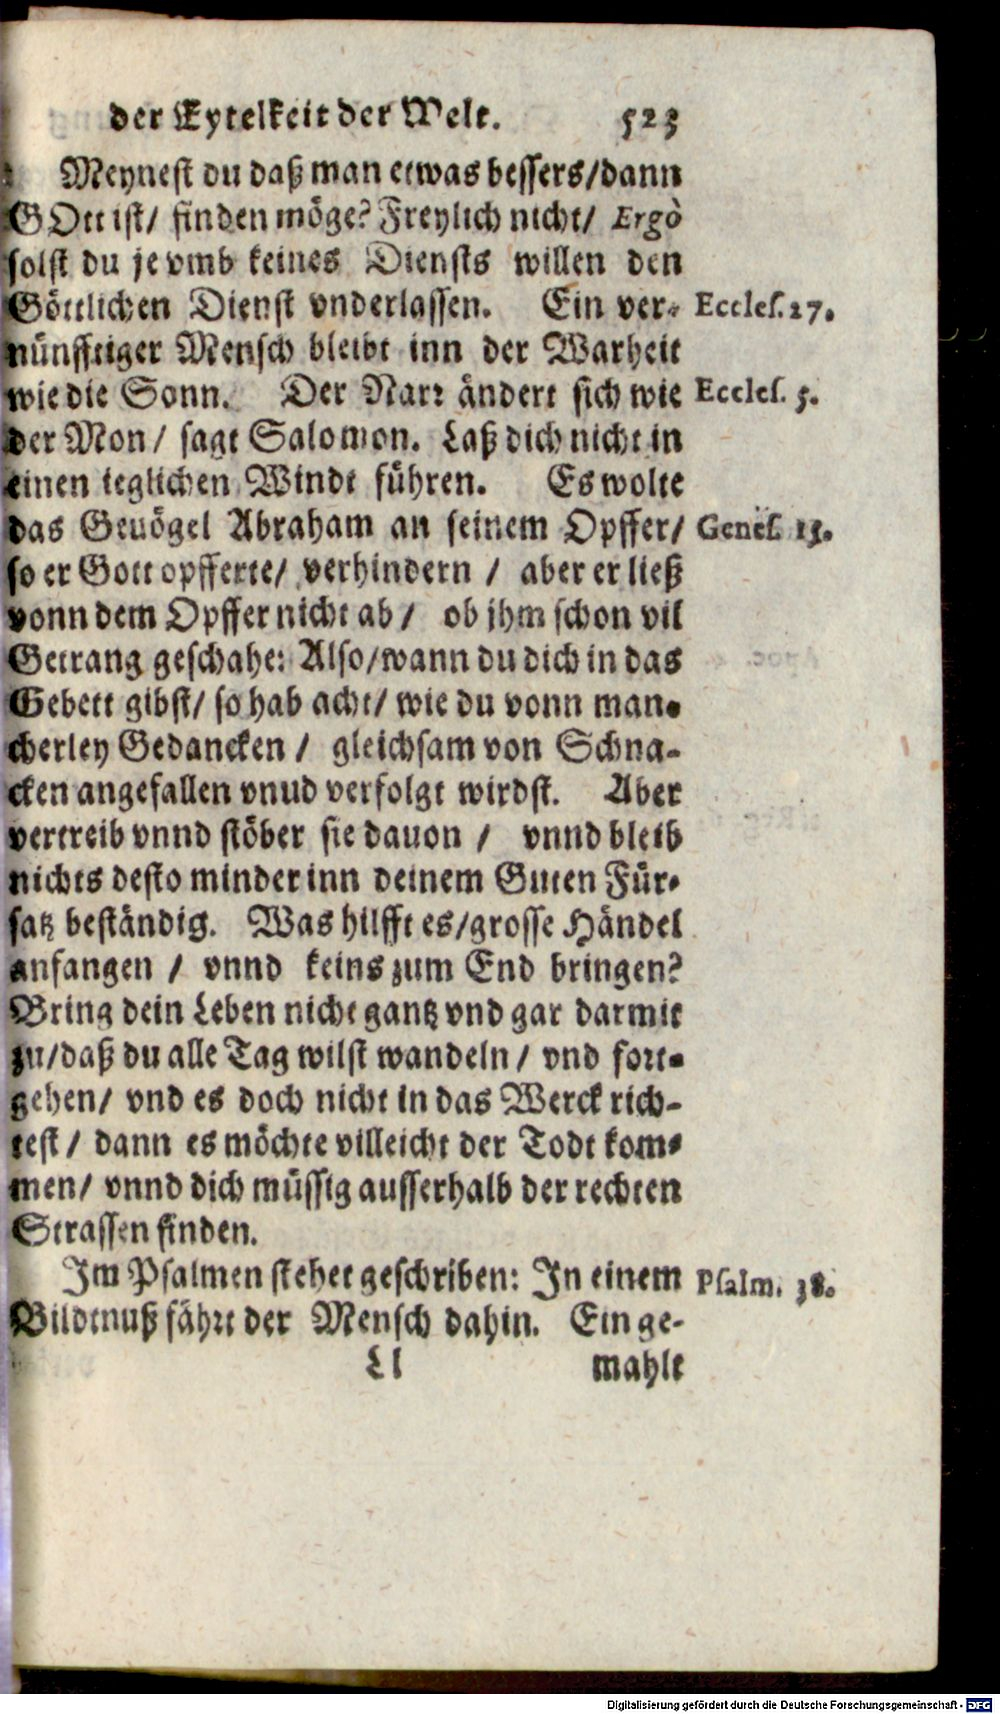 der Eytelkeit der Welt. 523
Meynest du daß man etwas bessers/dann
GOtt ist/ finden möge? Freylich nicht/ Ergò
solst du je vmb keines Diensts willen den
Göttlichen Dienst vnderlassen. Ein ver- Eccles. 27.
nünfftiger Mensch bleibt inn der Warheit
wie die Sonn. Der Narr ändert sich wie Eccles. 5.
der Mon/ sagt Salomon. Laß dich nicht in
einen ieglichen Windt führen. Es wolte
das Geuögel Abraham an seinem Opffer/ Genes. 15.
so er Gott opfferte/ verhindern / aber er ließ
vonn dem Opffer nicht ab / ob jhm schon vil
Getrang geschahe: Also/wann du dich in das
Gebett gibst/ so hab acht/ wie du vonn man-
cherley Gedancken / gleichsam von Schna-
cken angefallen vnud verfolgt wirdst. Aber
vertreib vnnd stöber sie dauon / vnnd bleib
nichts desto minder inn deinem Guten Für-
satz beständig. Was hilfft es/grosse Händel
anfangen / vnnd keins zum End bringen?
Bring dein Leben nicht gantz vnd gar darmit
zu/daß du alle Tag wilst wandeln / vnd fort-
gehen/ vnd es doch nicht in das Werck rich-
test / dann es möchte villeicht der Todt kom-
men/ vnnd dich müssig ausserhalb der rechten
Strassen finden.
Im Psalmen stehet geschriben: In einem Psalm. 38.
Bildtnuß fährt der Mensch dahin. Ein ge-
Ll mahlt
Digitalisierung gefördert durch die Deutsche Forschungsgemeinschaft - DFG